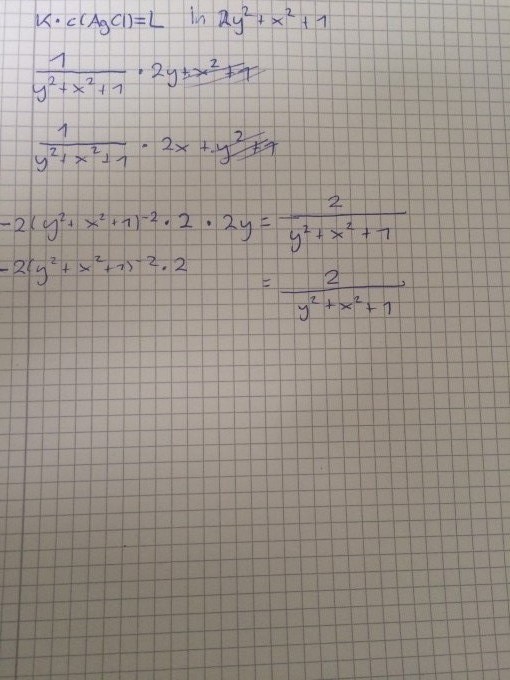 K · c(AgCl) = L ln 2y² + x² + 1
1 / (y² + x² + 1) · 2y + x² + 1
1 / (y² + x² + 1) · 2x + y² + 1
-2(y² + x² + 1)⁻² · 2 · 2y = 2 / (y² + x² + 1)
-2(y² + x² + 1)⁻² · 2 = 2 / (y² + x² + 1)